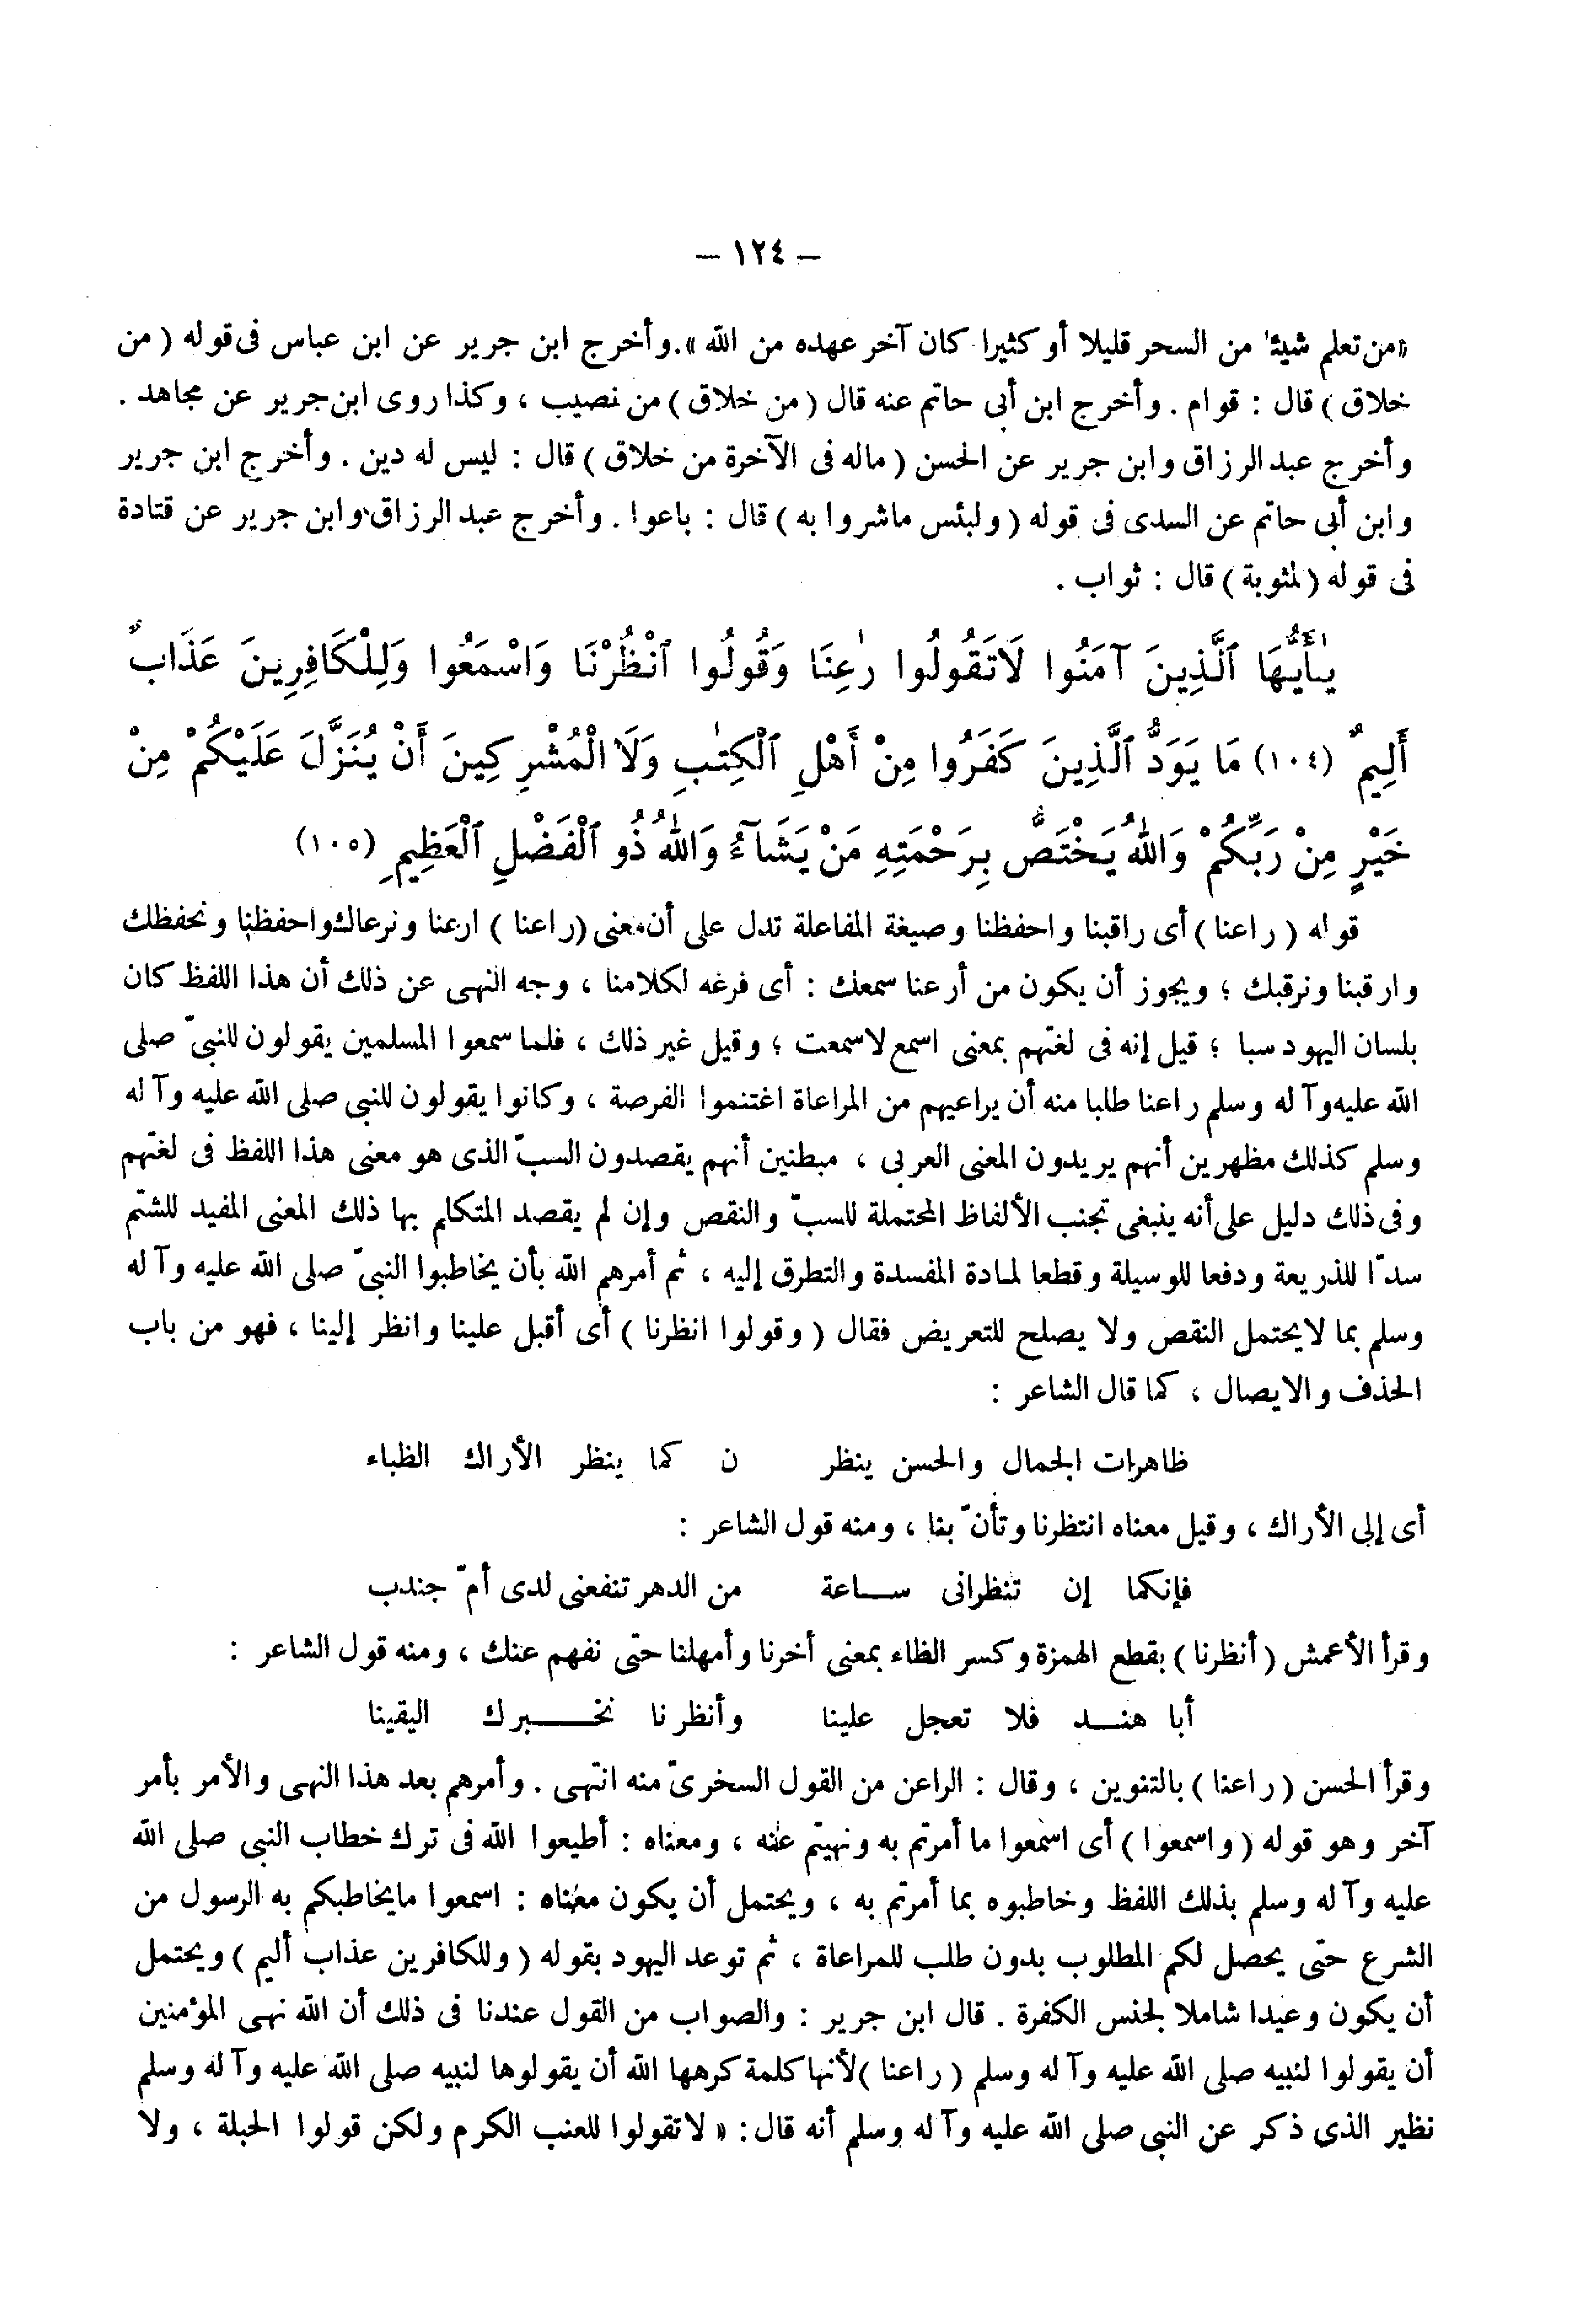 — ١٢٤ —
«من تعلم شيئا من السحر قليلا أو كثيرا كان آخر عهده من الله ». وأخرج ابن جرير عن ابن عباس فى قوله ( من
خلاق ) قال : قوام . وأخرج ابن أبى حاتم عنه قال ( من خلاق ) من نصيب ، وكذا روى ابن جرير عن مجاهد .
وأخرج عبد الرزاق وابن جرير عن الحسن ( ماله فى الآخرة من خلاق ) قال : ليس له دين . وأخرج ابن جرير
وابن أبى حاتم عن السدى فى قوله ( ولبئس ماشروا به ) قال : باعوا . وأخرج عبد الرزاق وابن جرير عن قتادة
فى قوله ( لمثوبة ) قال : ثواب .
يٰأَيُّهَا ٱلَّذِينَ آمَنُوا لَاتَقُولُوا رٰعِنَا وَقُولُوا ٱنْظُرْنَا وَاسْمَعُوا وَلِلْكَافِرِينَ عَذَابٌ
أَلِيمٌ (١٠٤) مَا يَوَدُّ ٱلَّذِينَ كَفَرُوا مِنْ أَهْلِ ٱلْكِتٰبِ وَلَا الْمُشْرِكِينَ أَنْ يُنَزَّلَ عَلَيْكُمْ مِنْ
خَيْرٍ مِنْ رَبِّكُمْ وَاللّٰهُ يَخْتَصُّ بِرَحْمَتِهِ مَنْ يَشَآءُ وَاللّٰهُ ذُو ٱلْفَضْلِ ٱلْعَظِيمِ (١٠٥)
قوله ( راعنا ) أى راقبنا واحفظنا وصيغة المفاعلة تدل على أن معنى ( راعنا ) ارعنا ونرعاك واحفظنا ونحفظك
وارقبنا ونرقبك ؛ ويجوز أن يكون من أرعنا سمعك : أى فرغه لكلامنا ، وجه النهى عن ذلك أن هذا اللفظ كان
بلسان اليهود سبا ؛ قيل إنه فى لغتهم بمعنى اسمع لاسمعت ؛ وقيل غير ذلك ، فلما سمعوا المسلمين يقولون للنبىّ صلى
الله عليه وآله وسلم راعنا طلبا منه أن يراعيهم من المراعاة اغتنموا الفرصة ، وكانوا يقولون للنبى صلى الله عليه وآله
وسلم كذلك مظهرين أنهم يريدون المعنى العربى ، مبطنين أنهم يقصدون السبّ الذى هو معنى هذا اللفظ فى لغتهم
وفى ذلك دليل على أنه ينبغى تجنب الألفاظ المحتملة للسبّ والنقص وإن لم يقصد المتكلم بها ذلك المعنى المفيد للشتم
سدّا للذريعة ودفعا للوسيلة وقطعا لمادة المفسدة والتطرق إليه ، ثم أمرهم الله بأن يخاطبوا النبىّ صلى الله عليه وآله
وسلم بما لايحتمل النقص ولا يصلح للتعريض فقال ( وقولوا انظرنا ) أى أقبل علينا وانظر إلينا ، فهو من باب
الحذف والايصال ، كما قال الشاعر :
ظاهرات الجمال والحسن ينظر ن كما ينظر الأراك الظباء
أى إلى الأراك ، وقيل معناه انتظرنا وتأنّ بنا ، ومنه قول الشاعر :
فإنكما إن تنظرانى ساعة من الدهر تنفعنى لدى أمّ جندب
وقرأ الأعمش ( أنظرنا ) بقطع الهمزة وكسر الظاء بمعنى أخرنا وأمهلنا حتى نفهم عنك ، ومنه قول الشاعر :
أبا هند فلا تعجل علينا وأنظرنا نخبرك اليقينا
وقرأ الحسن ( راعنا ) بالتنوين ، وقال : الراعن من القول السخرىّ منه انتهى . وأمرهم بعد هذا النهى والأمر بأمر
آخر وهو قوله ( واسمعوا ) أى اسمعوا ما أمرتم به ونهيتم عنه ، ومعناه : أطيعوا الله فى ترك خطاب النبى صلى الله
عليه وآله وسلم بذلك اللفظ وخاطبوه بما أمرتم به ، ويحتمل أن يكون معناه : اسمعوا مايخاطبكم به الرسول من
الشرع حتى يحصل لكم المطلوب بدون طلب للمراعاة ، ثم توعد اليهود بقوله ( وللكافرين عذاب أليم ) ويحتمل
أن يكون وعيدا شاملا لجنس الكفرة . قال ابن جرير : والصواب من القول عندنا فى ذلك أن الله نهى المؤمنين
أن يقولوا لنبيه صلى الله عليه وآله وسلم ( راعنا ) لأنها كلمة كرهها الله أن يقولوها لنبيه صلى الله عليه وآله وسلم
نظير الذى ذكر عن النبى صلى الله عليه وآله وسلم أنه قال : « لاتقولوا للعنب الكرم ولكن قولوا الحبلة ، ولا